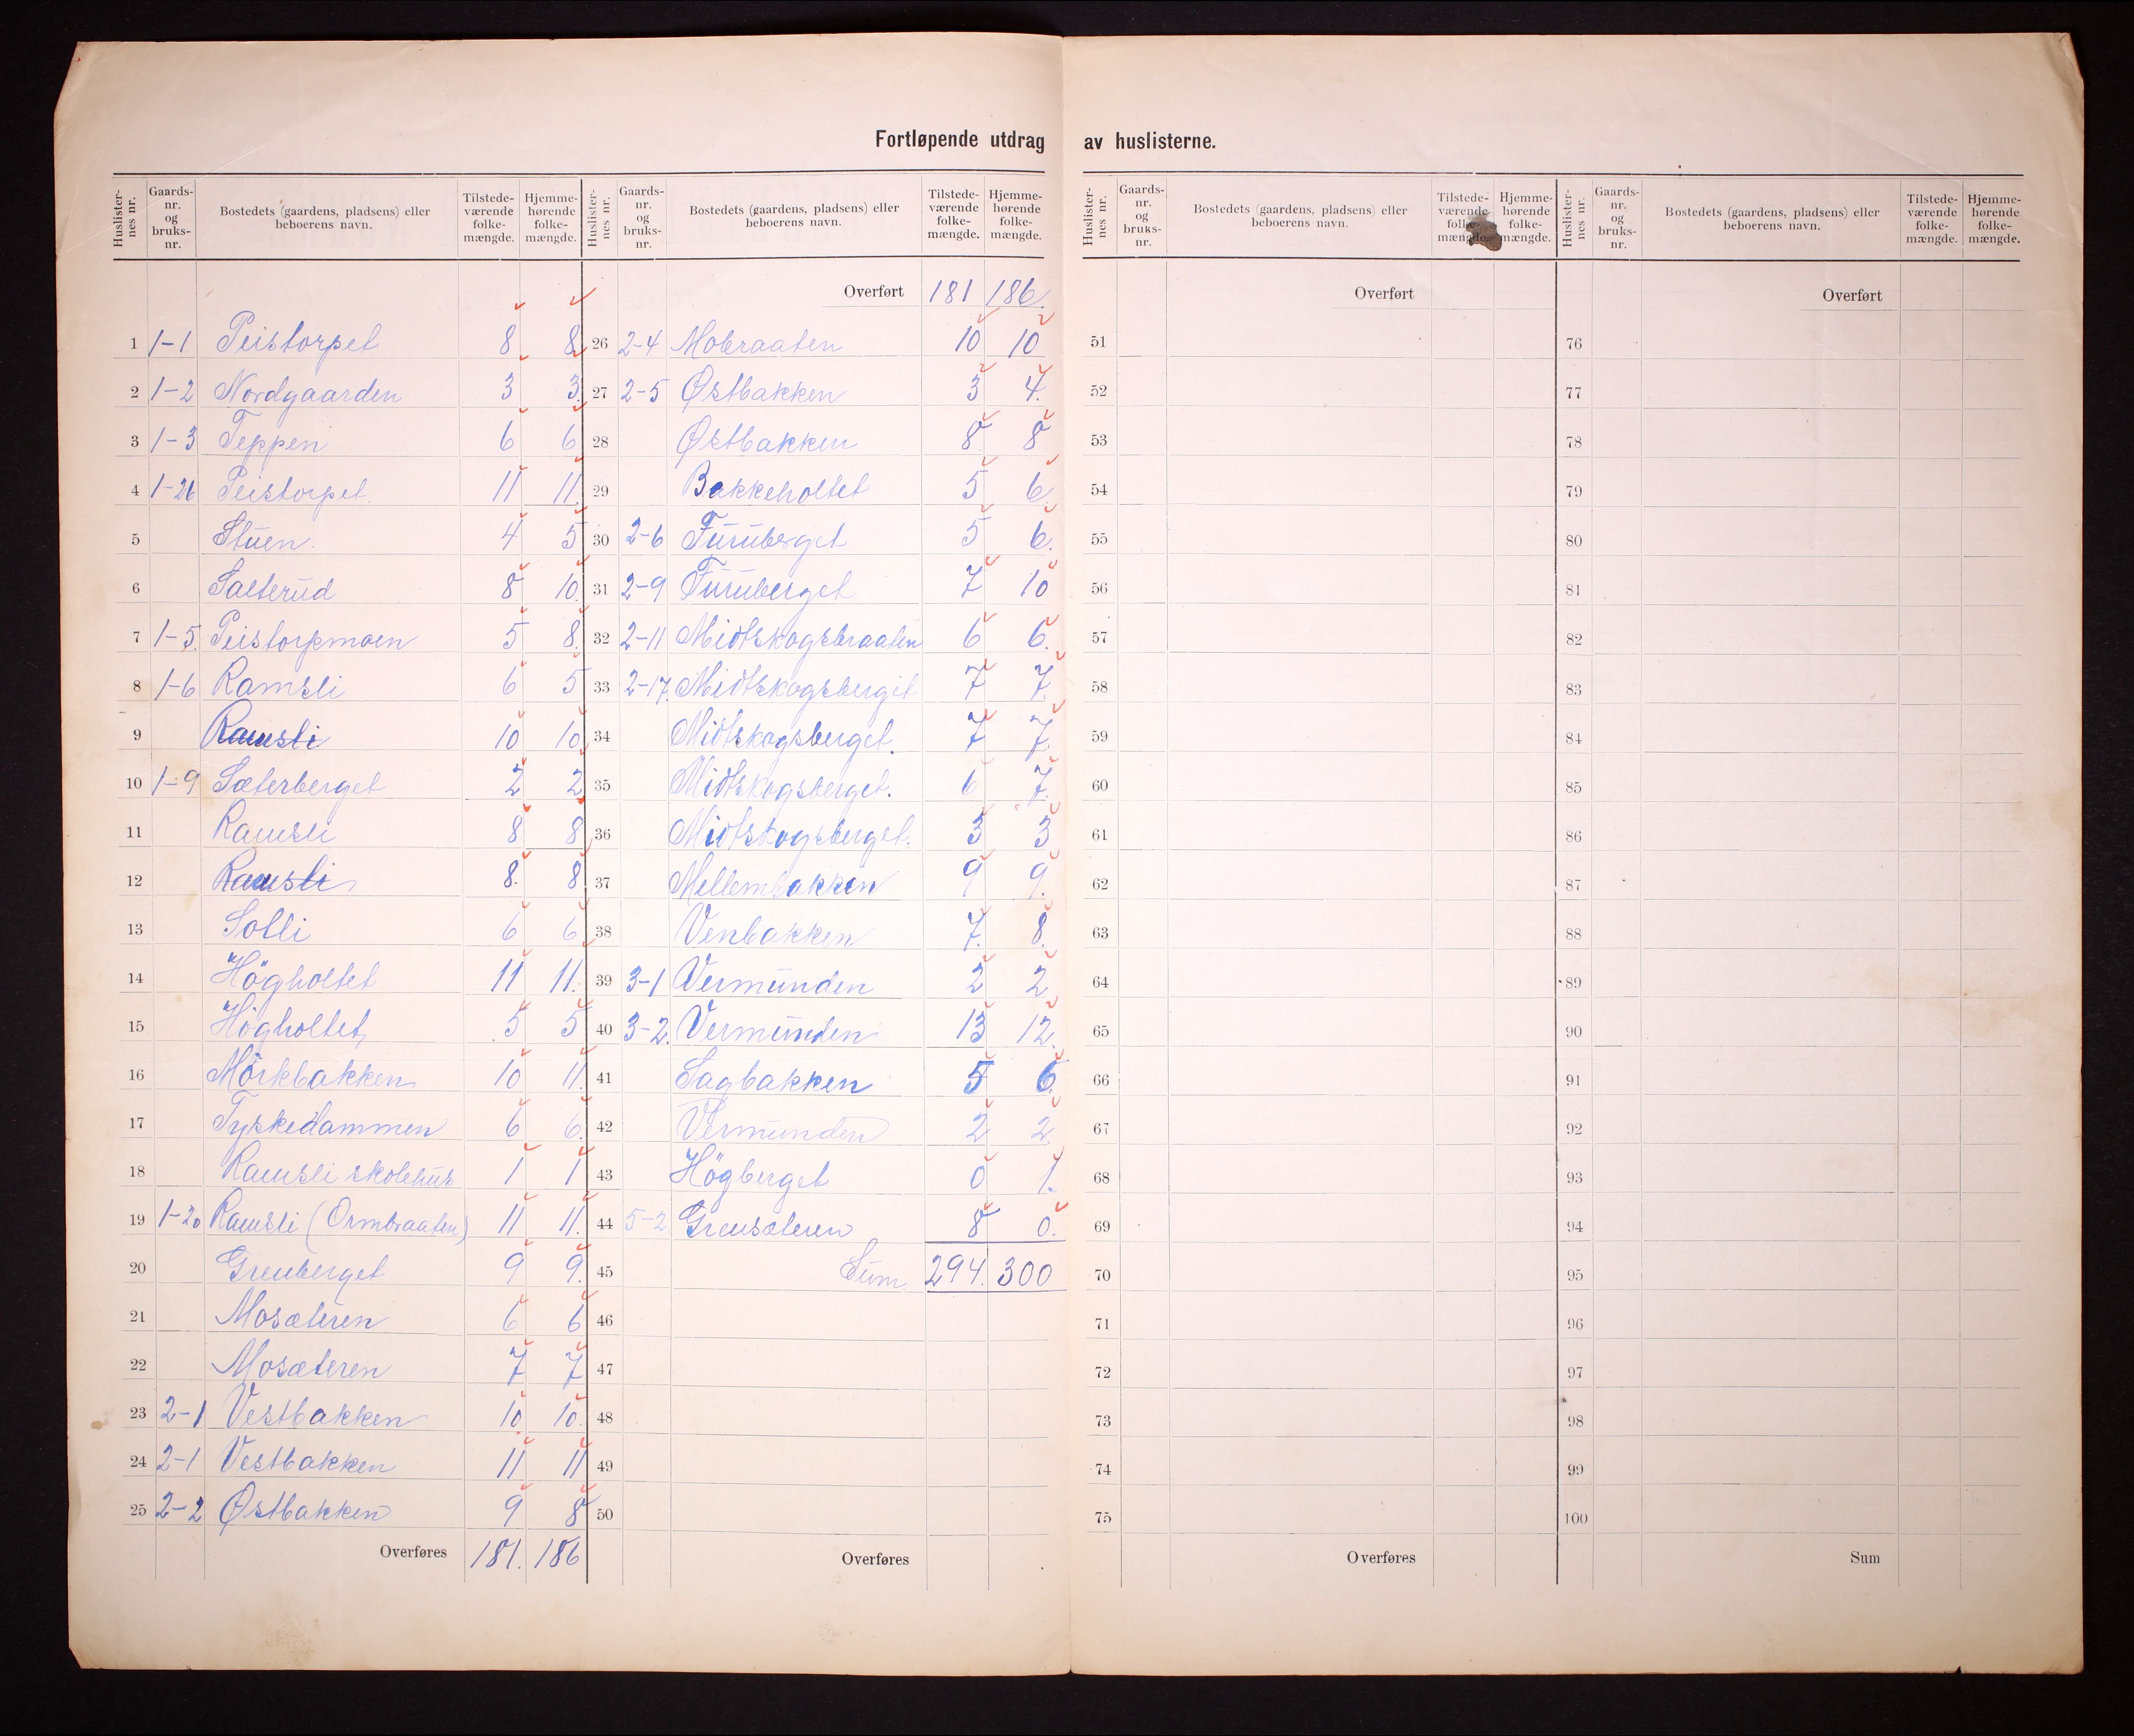 Fortløpende utdrag av huslisterne.
Huslisternes nr. Gaards-nr. og bruks-nr. Bostedets (gaardens, pladsens) eller beboerens navn. Tilstedeværende folkemængde. Hjemmehørende folkemængde.
1 1-1 Peistorpet 8 8
2 1-2 Nordgaarden 3 3
3 1-3 Teppen 6 6
4 1-26 Peistorpet 11 11
5 Stuen. 4 5
6 Sæterud 8 10
7 1-5. Peistorpmoen 5 8.
8 1-6 Ramsli 6 5
9 Ramsli 10 10
10 1-9 Sæterberget 2 2
11 Ramsli 8 8
12 Ramsli 8. 8
13 Solli 6 6
14 Högholtet 11 11.
15 Högholtet 5 5
16 Mörkbakken 10 11.
17 Tyskedammen 6 6.
18 Ramsli skolehus 1 1
19 1-20 Ramsli (Ormbraaten) 11 11.
20 Grenberget 9 9.
21 Mosæteren 6 6
22 Mosæteren 7 7
23 2-1 Vestbakken 10 10.
24 2-1 Vestbakken 11 11
25 2-2 Østbakken 9 8
Overføres 181. 186
Huslisternes nr. Gaards-nr. og bruks-nr. Bostedets (gaardens, pladsens) eller beboerens navn. Tilstedeværende folkemængde. Hjemmehørende folkemængde.
Overført 181 186.
26 2-4 Mobraaten 10 10
27 2-5 Østbakken 3 4.
28 Østbakken 8 8
29 Bakkeholtet 5 6.
30 2-6 Furuberget 5 6.
31 2-9 Furuberget 7 10
32 2-11 Midtskogsbraaten 6 6.
33 2-17. Midtskogsberget 7 7.
34 Midtskogsberget. 7 7.
35 Midtskogsberget. 6 7.
36 Midtskogsberget. 3 3
37 Mellembakken 9 9.
38 Venbakken 7. 8.
39 3-1 Vermunden 2 2
40 3-2. Vermunden 13 12.
41 Sagbakken 5 6.
42 Vermunden 2 2.
43 Högberget 0 1.
44 5-2 Grensæteren 8 0.
45 Sum. 294. 300
46
47
48
49
50
Overføres
Huslisternes nr. Gaards-nr. og bruks-nr. Bostedets (gaardens, pladsens) eller beboerens navn. Tilstedeværende folkemængde. Hjemmehørende folkemængde.
Overført
51
52
53
54
55
56
57
58
59
60
61
62
63
64
65
66
67
68
69
70
71
72
73
74
75
Overføres
Huslisternes nr. Gaards-nr. og bruks-nr. Bostedets (gaardens, pladsens) eller beboerens navn. Tilstedeværende folkemængde. Hjemmehørende folkemængde.
Overført
76
77
78
79
80
81
82
83
84
85
86
87
88
89
90
91
92
93
94
95
96
97
98
99
100
Sum